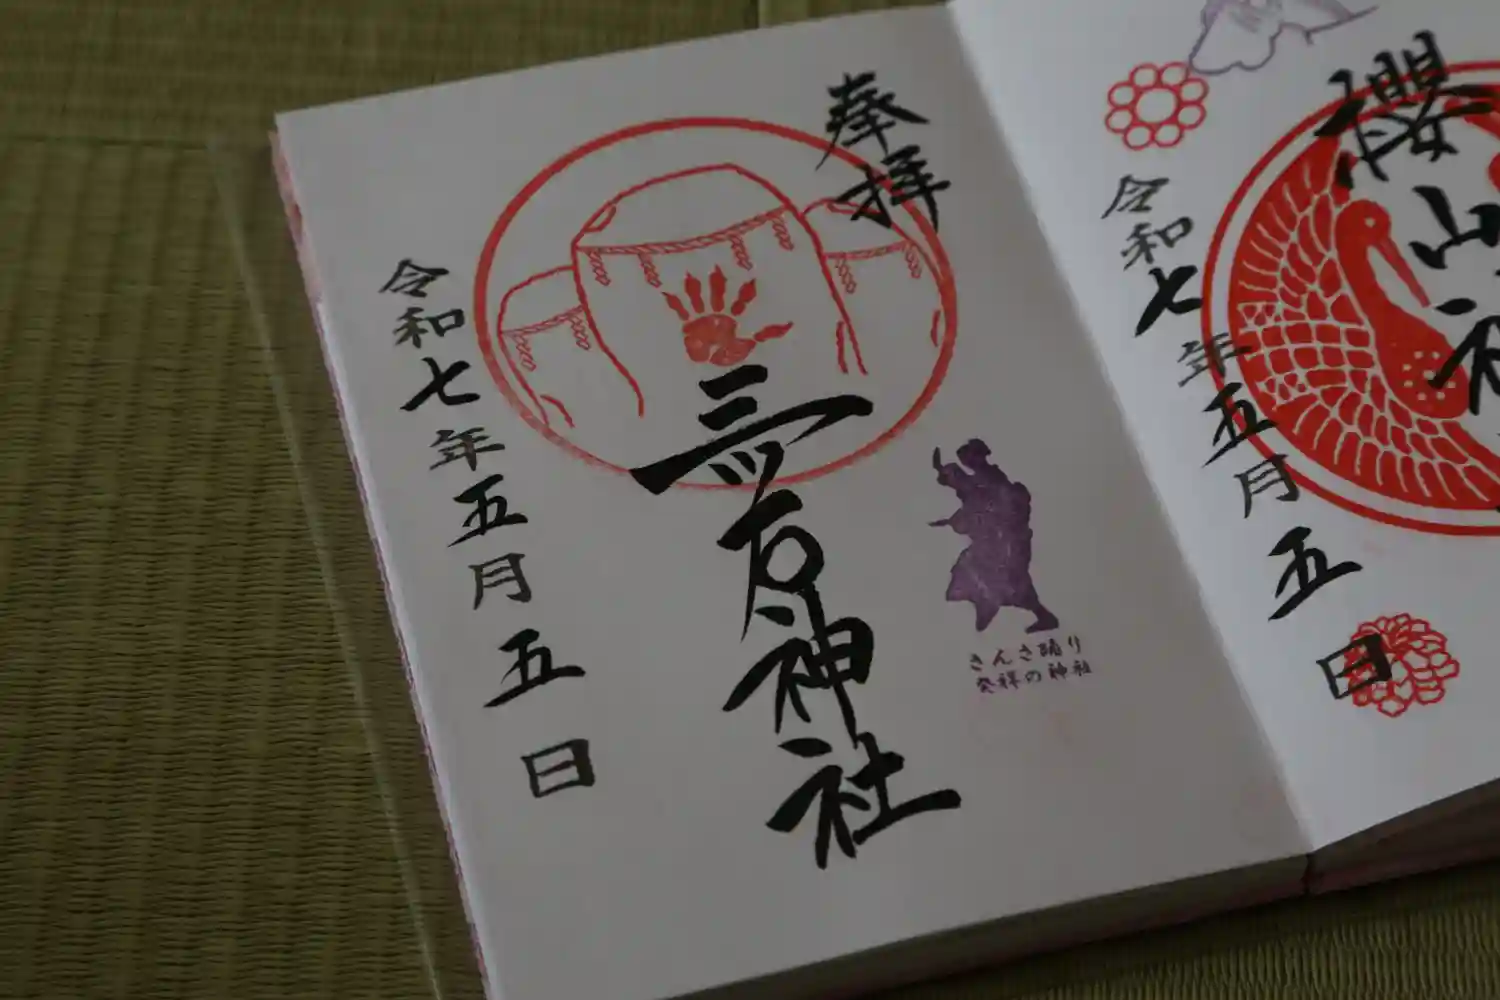 櫻山神社
令和七年五月五日
奉拝
三ツ石神社
さんさ踊り
発祥の神社
令和七年五月五日